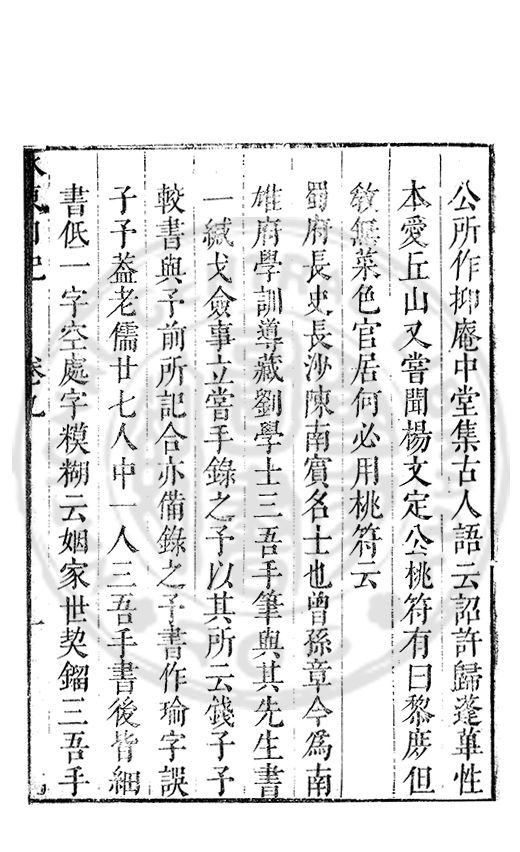 公所作抑庵中堂集古人語云詔許歸蓬蓽性
本愛丘山又嘗聞楊文定公桃符有曰黎庶但
敎無菜色官居何必用桃符云
蜀府長史長沙陳南賓名士也曾孫章今爲南
雄府學訓導藏劉學士三吾手筆與其先生書
一緘戈僉事立嘗手錄之予以其所云錢子予
較書與予前所記合亦備錄之予書作瑜字誤
子予葢老儒廿七人中一人三吾手書後皆細
書低一字空處字糢糊云姻家世契鎦三吾手
水東日記 卷九